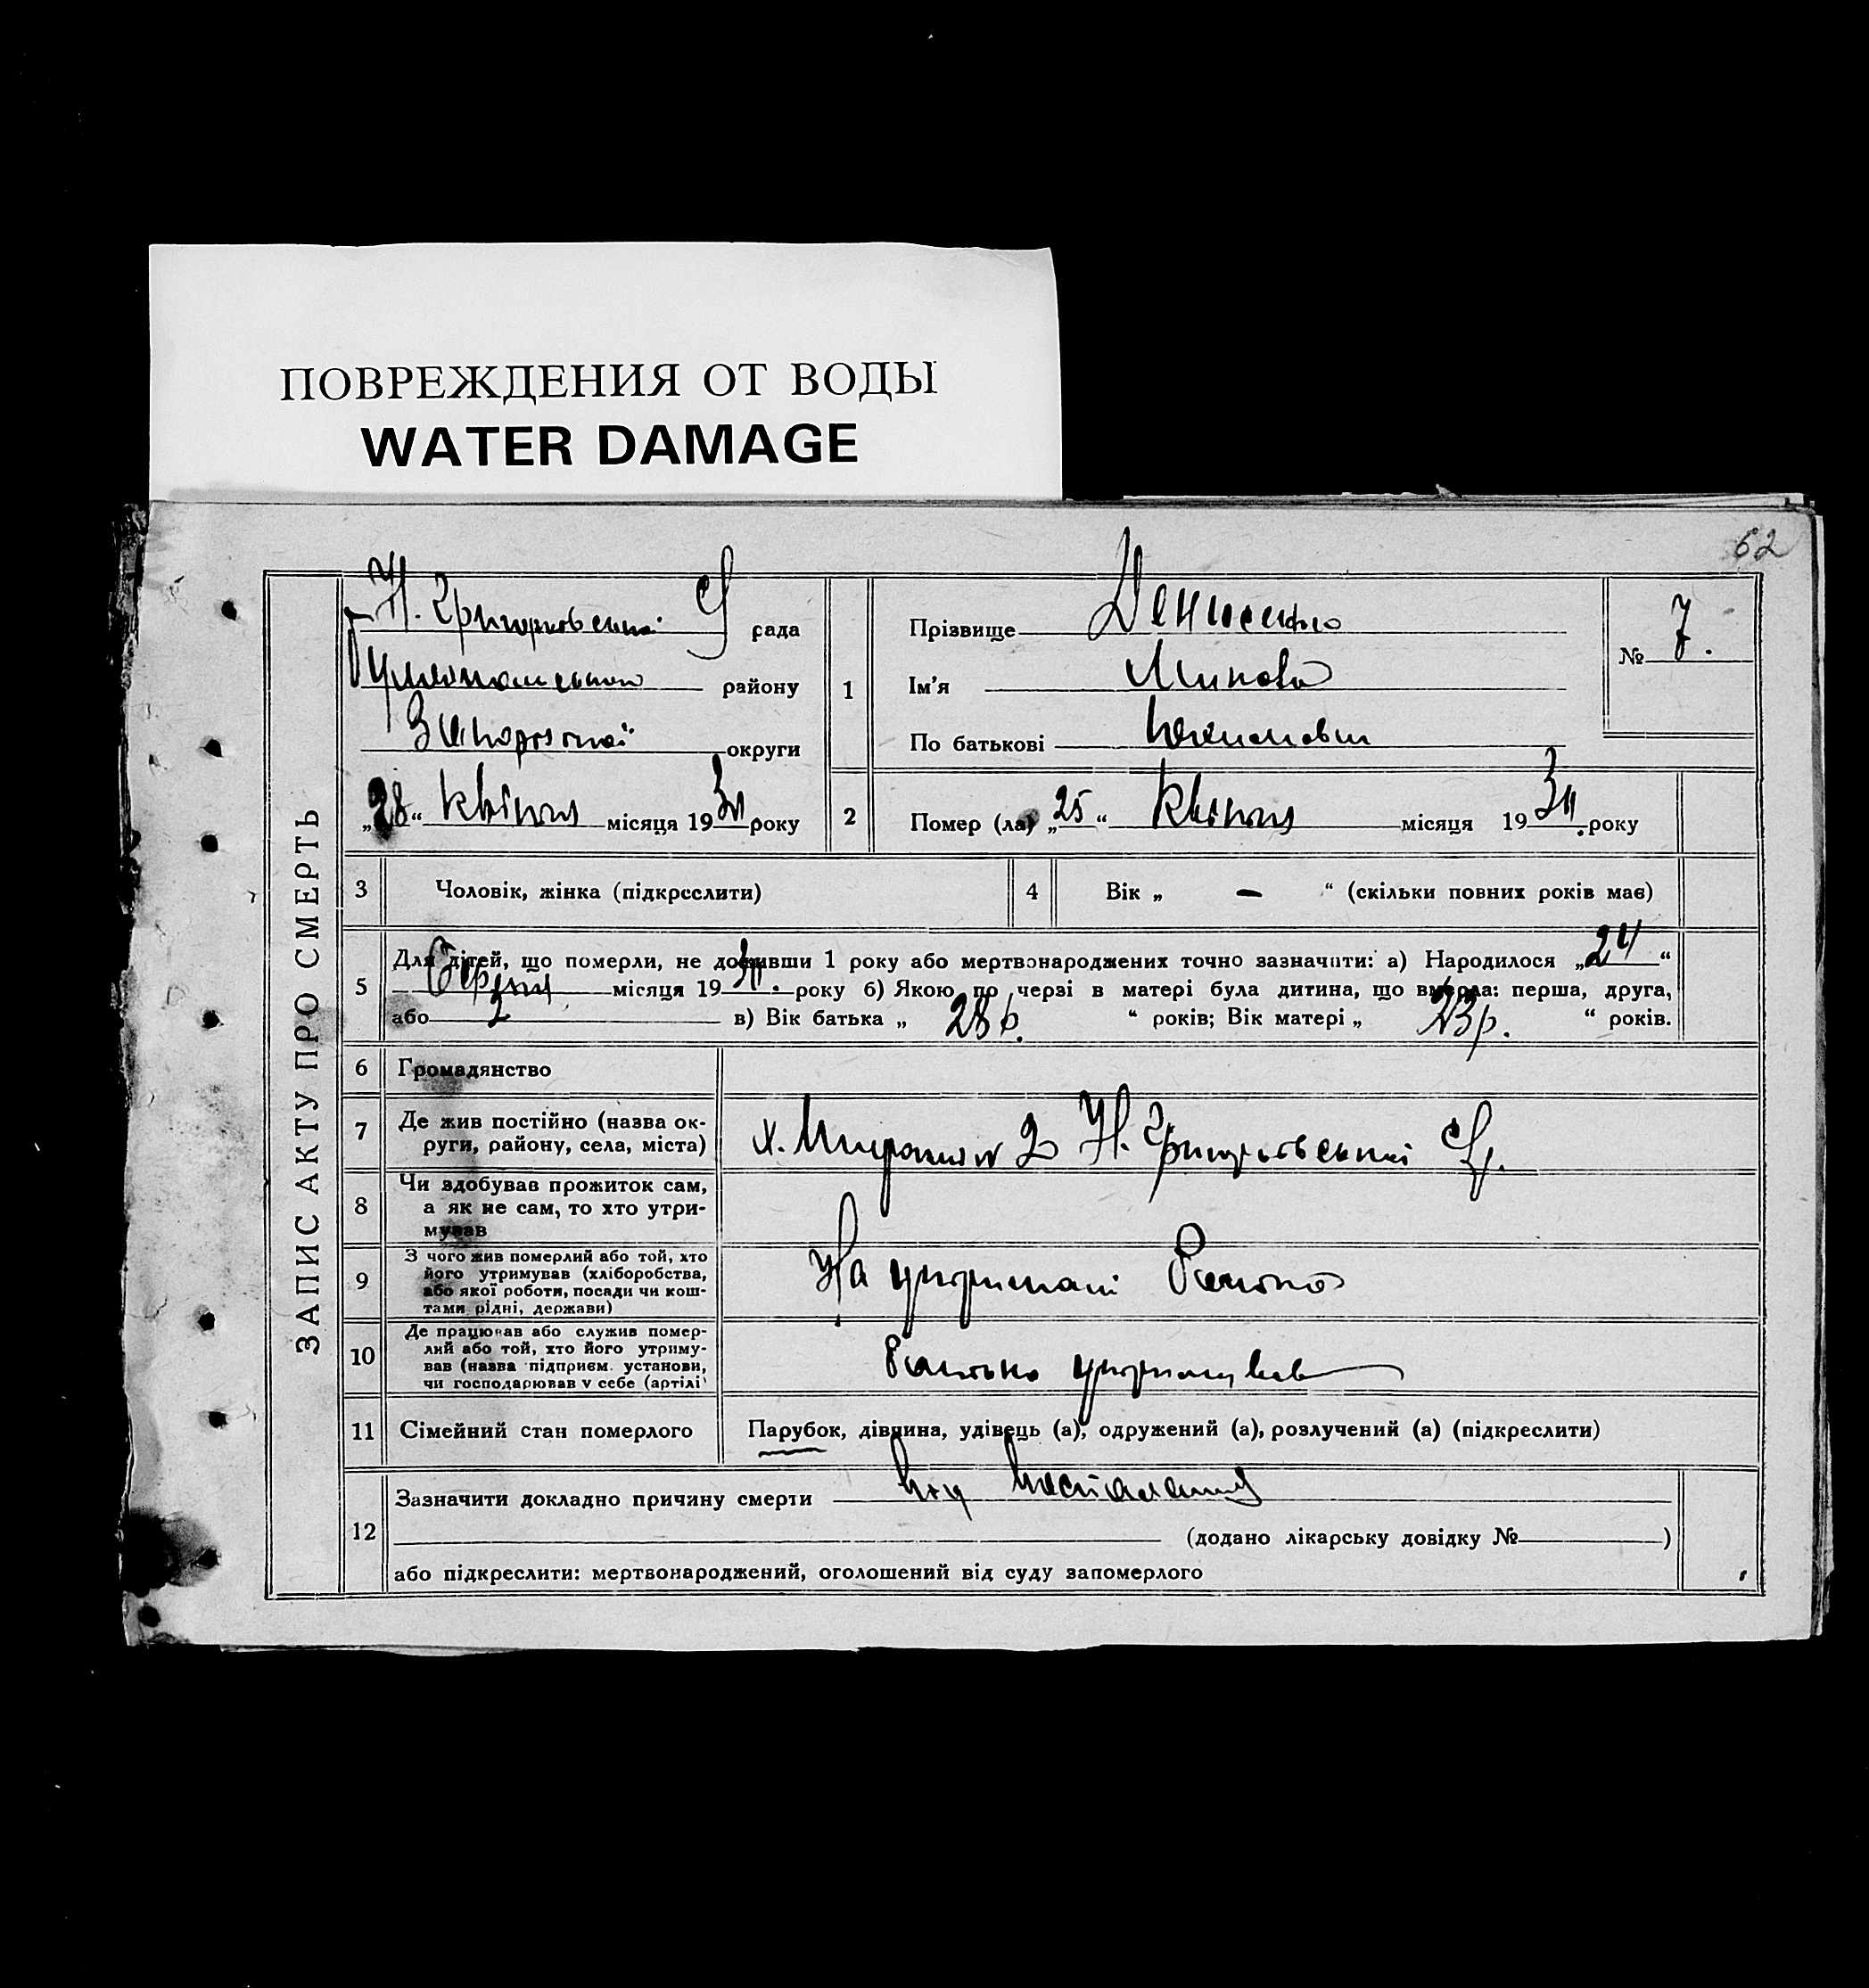 ПОВРЕЖДЕНИЯ ОТ ВОДЫ
WATER DAMAGE
62
ЗАПИС АКТУ ПРО СМЕРТЬ
Н. Григоровської С рада
району
Запорізької округи
„28“ квітня місяця 1930 року
1 Прізвище Денисенко
Ім'я Микола
По батькові
№ 7.
2 Помер (ла) „25“ квітня місяця 1930 року
3 Чоловік, жінка (підкреслити)
4 Вік „ — “ (скільки повних років має)
5 Для дітей, що померли, не доживши 1 року або мертвонароджених точно зазначити: а) Народилося „24“
місяця 19 року б) Якою по черзі в матері була дитина, що вмерла: перша, друга,
або 2 в) Вік батька „ 28 р. “ років; Вік матері „ 23 р. “ років.
6 Громадянство
7 Де жив постійно (назва ок-
руги, району, села, міста)
х. 2 Н. Григоровської С/р.
8 Чи здобував прожиток сам,
а як не сам, то хто утри-
мував
9 З чого жив померлий або той, хто
його утримував (хліборобства,
або якої роботи, посади чи кош-
тами рідні, держави)
На утриманні батька
10 Де працював або служив помер-
лий або той, хто його утриму-
вав (назва підприєм. установи,
чи господарював у себе (артілі)
Батько утримував
11 Сімейний стан померлого
Парубок, дівчина, удівець (а), одружений (а), розлучений (а) (підкреслити)
12 Зазначити докладно причину смерти
(додано лікарську довідку № )
або підкреслити: мертвонароджений, оголошений від суду запомерлого